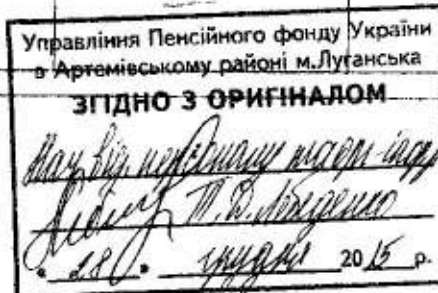 Управління Пенсійного фонду України
в Артемівському районі м.Луганська
ЗГІДНО З ОРИГІНАЛОМ
Нач від
Т.В.
"28" грудня 2015 р.